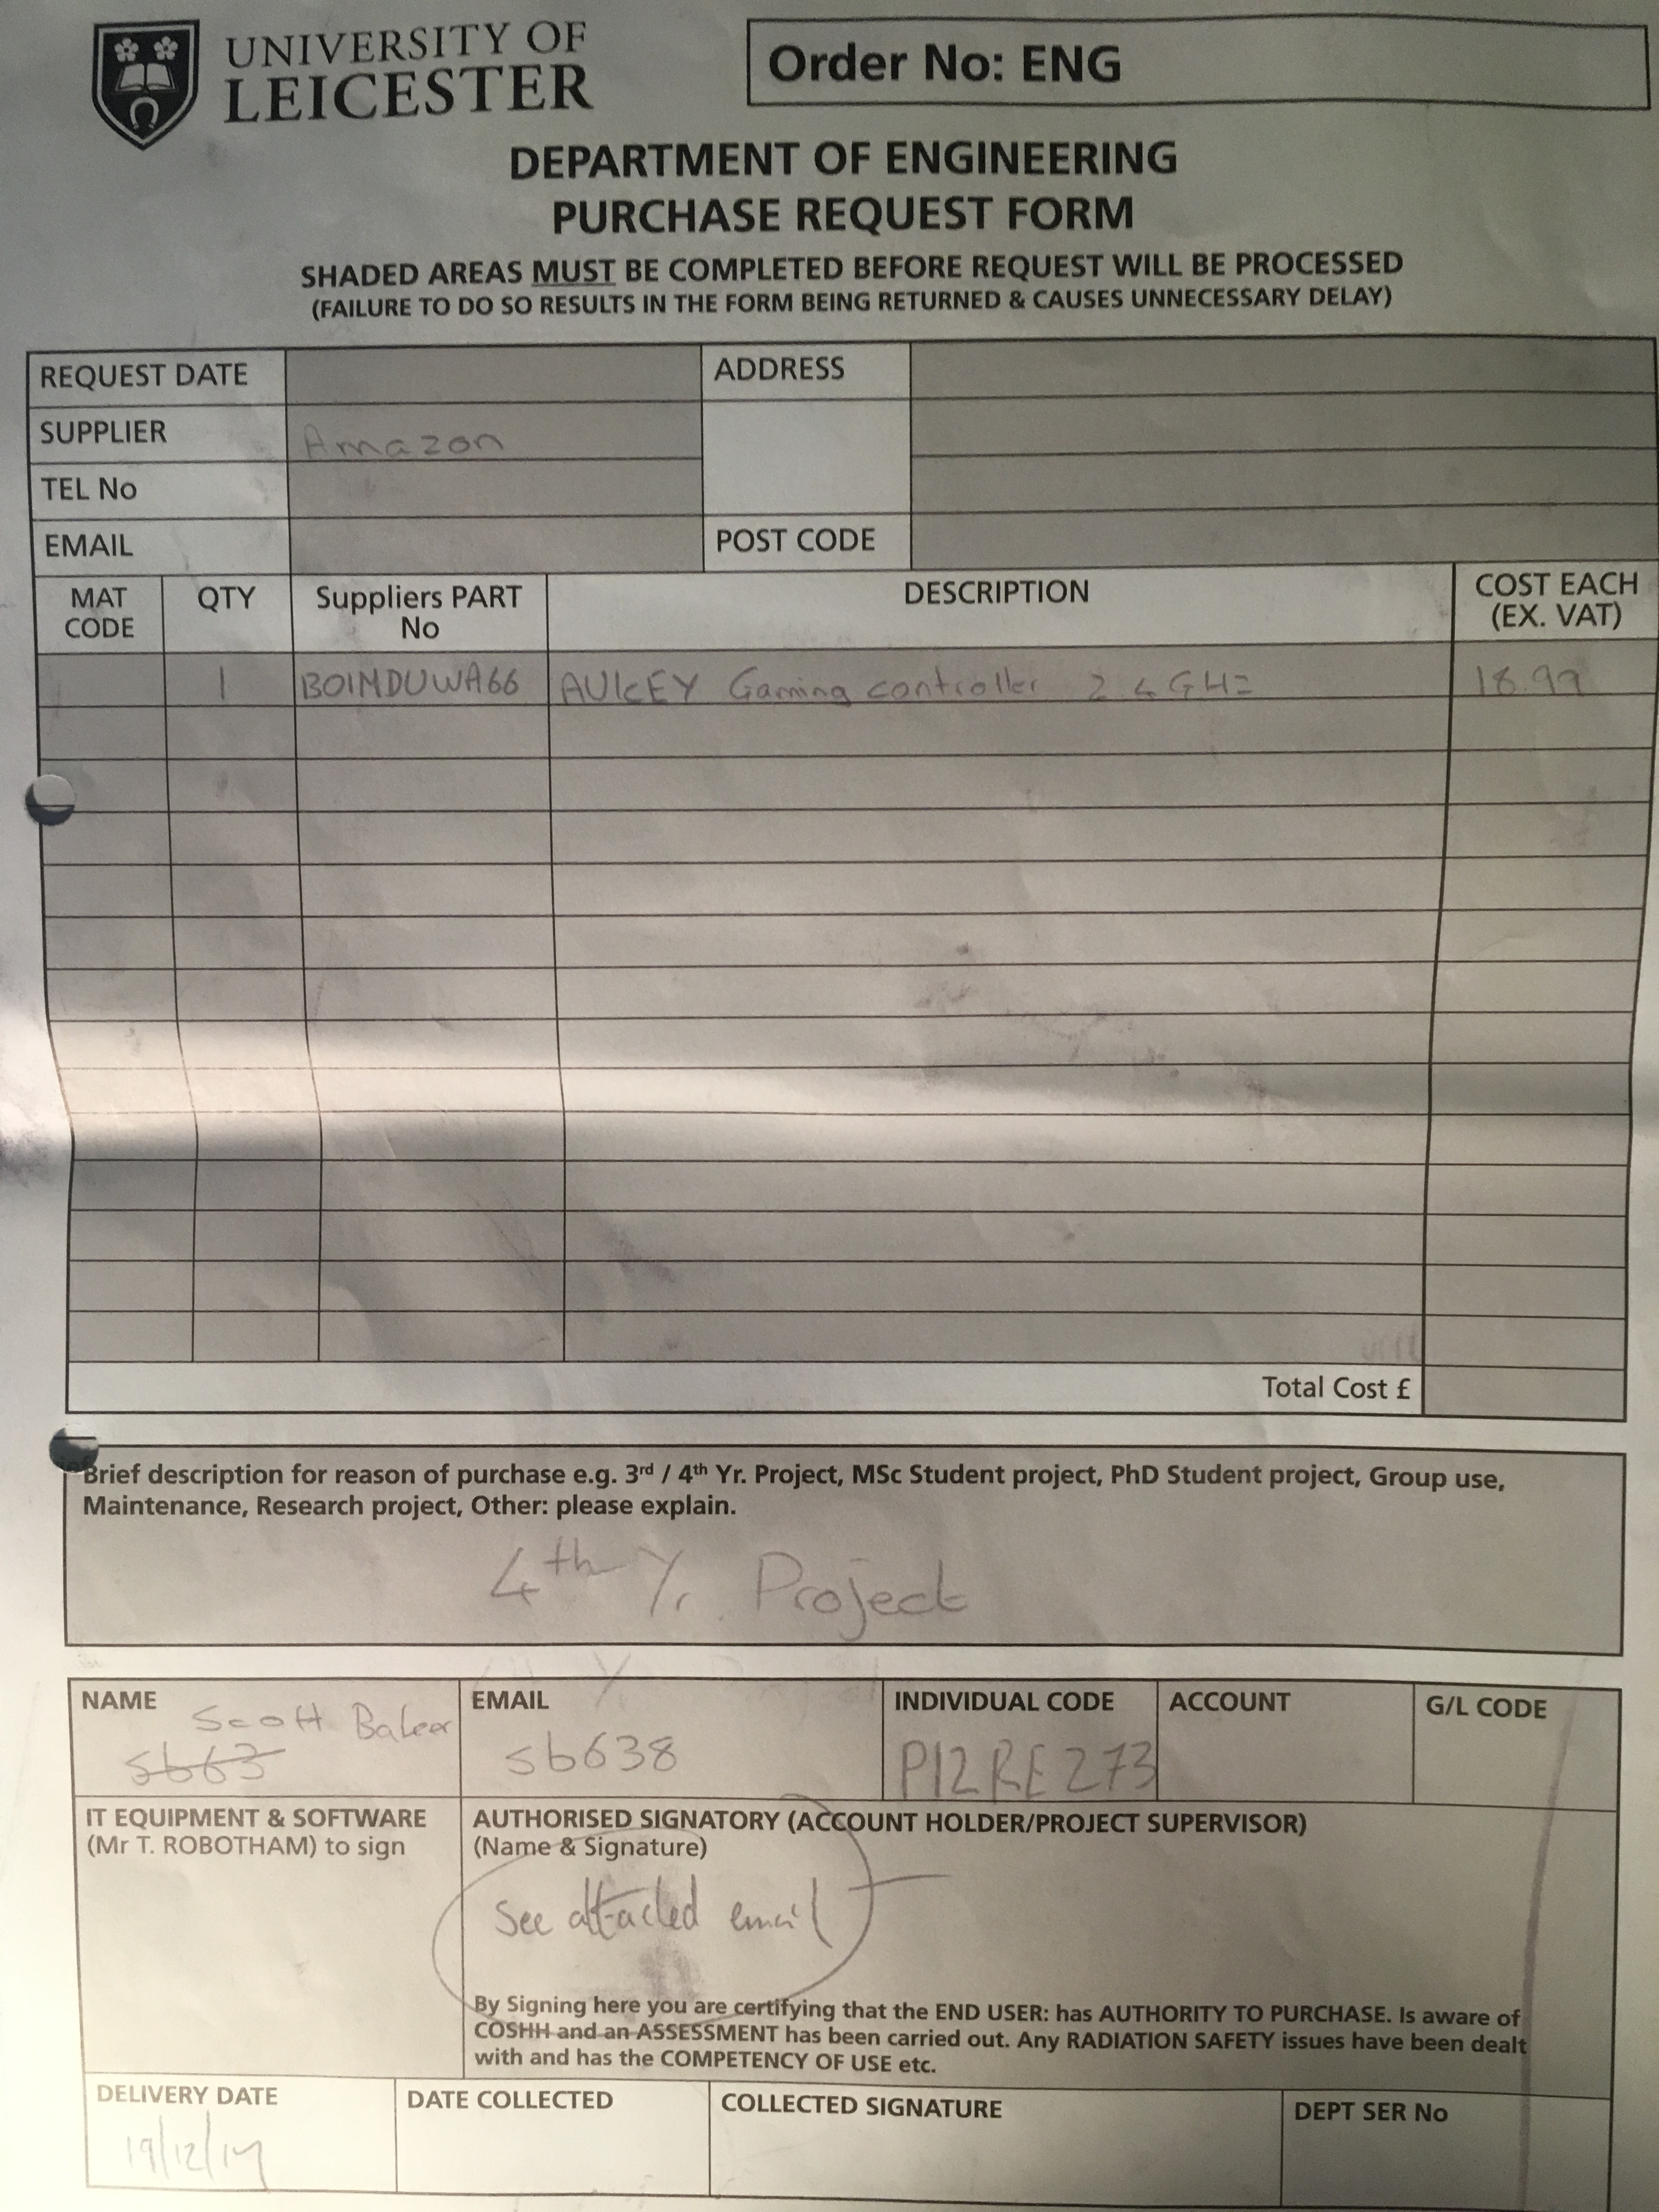 UNIVERSITY OF
LEICESTER
Order No: ENG
DEPARTMENT OF ENGINEERING
PURCHASE REQUEST FORM
SHADED AREAS MUST BE COMPLETED BEFORE REQUEST WILL BE PROCESSED
(FAILURE TO DO SO RESULTS IN THE FORM BEING RETURNED & CAUSES UNNECESSARY DELAY)
REQUEST DATE ADDRESS
SUPPLIER Amazon
TEL No
EMAIL POST CODE
MAT CODE QTY Suppliers PART No DESCRIPTION COST EACH (EX. VAT)
1 B01MDUWA66 AUKEY Gaming controller 2.4GHz 18.99
Total Cost £
Brief description for reason of purchase e.g. 3rd / 4th Yr. Project, MSc Student project, PhD Student project, Group use,
Maintenance, Research project, Other: please explain.
4th Yr. Project
NAME EMAIL INDIVIDUAL CODE ACCOUNT G/L CODE
Scott Baker
sb63 sb638 P12RE273
IT EQUIPMENT & SOFTWARE
(Mr T. ROBOTHAM) to sign
AUTHORISED SIGNATORY (ACCOUNT HOLDER/PROJECT SUPERVISOR)
(Name & Signature)
See attached email
By Signing here you are certifying that the END USER: has AUTHORITY TO PURCHASE. Is aware of
COSHH and an ASSESSMENT has been carried out. Any RADIATION SAFETY issues have been dealt
with and has the COMPETENCY OF USE etc.
DELIVERY DATE DATE COLLECTED COLLECTED SIGNATURE DEPT SER No
19/12/17